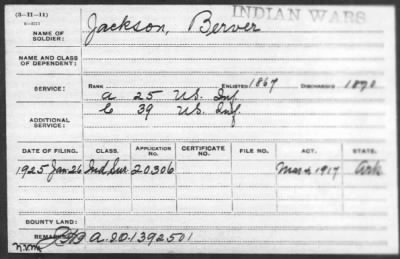 (3-II-11)
INDIAN WARS
NAME OF SOLDIER: Jackson, Berver
NAME AND CLASS OF DEPENDENT:
SERVICE: RANK ENLISTED 1867 DISCHARGED 1870
A 25 U.S. Inf
ADDITIONAL SERVICE: C 39 U.S. Inf.
DATE OF FILING. CLASS. APPLICATION NO. CERTIFICATE NO. FILE NO. ACT. STATE.
1925 Jan. 26 Ind. Sur. 20306 Mar 4 1917 Ark
BOUNTY LAND:
REMARKS: A.D. 1392501